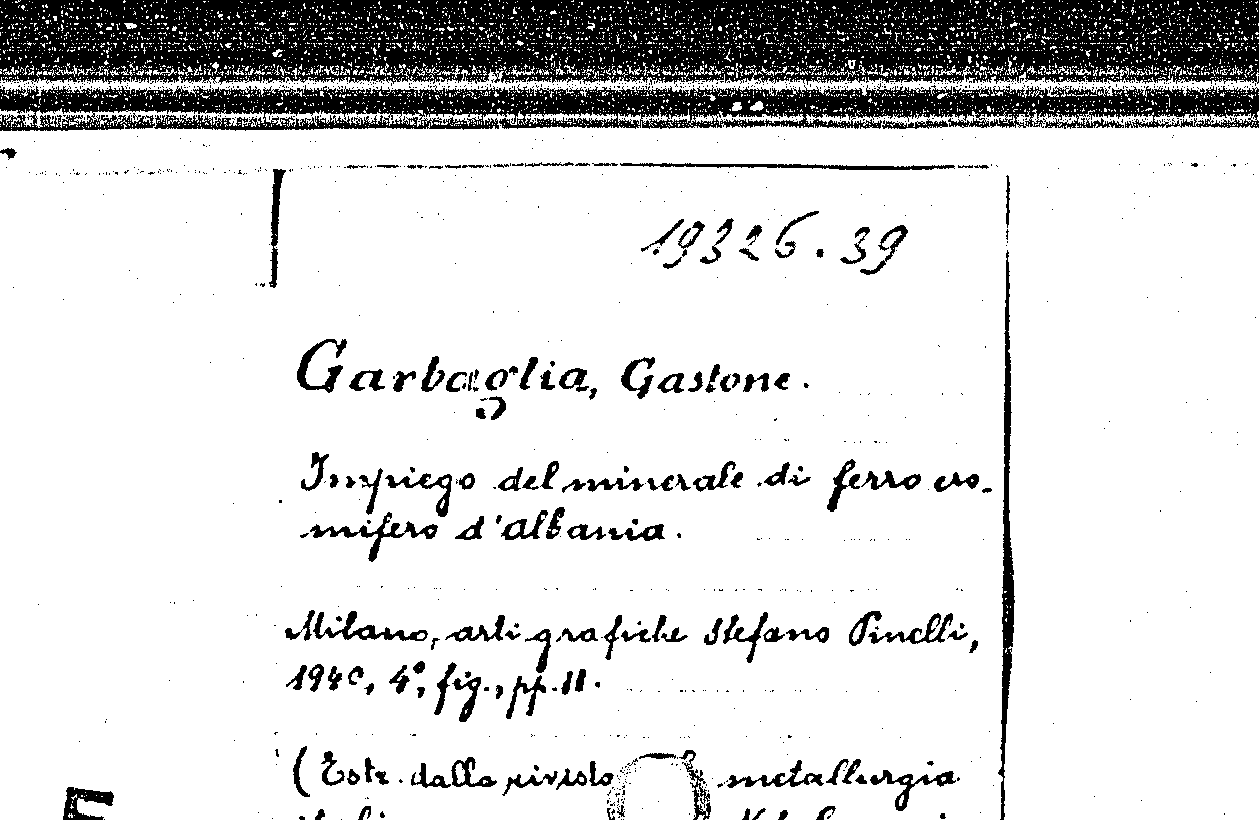 19326.39
Garbaglia, Gastone.
Impiego del minerale di ferro cro-
mifero d'Albania.
Milano, arti grafiche Stefano Pinelli,
1940, 4°, fig., pp. 11.
(Estr. dalla rivista metallurgia